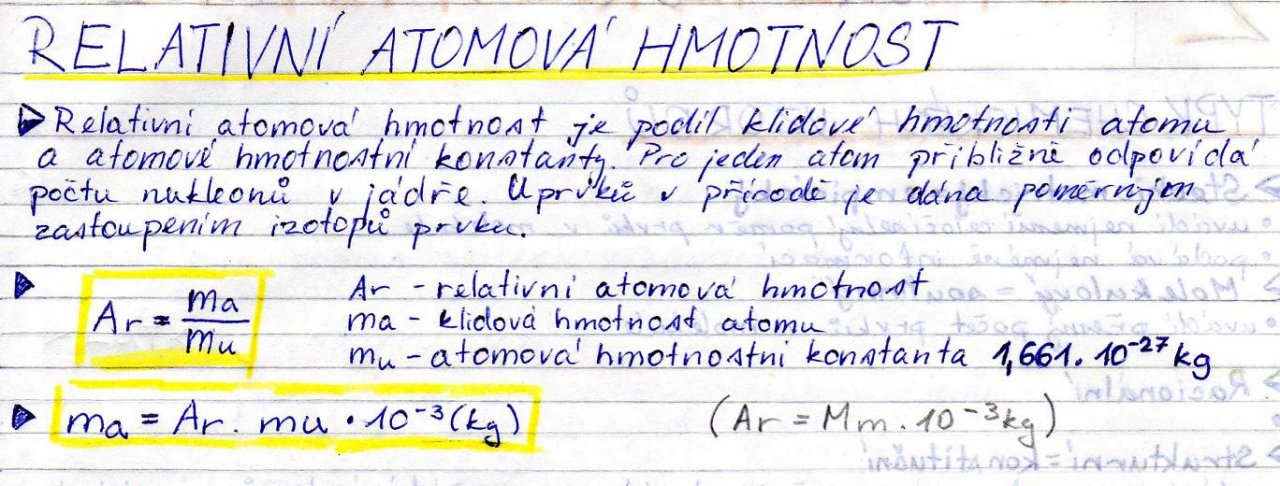 RELATIVNÍ ATOMOVÁ HMOTNOST
Relativní atomová hmotnost je podíl klidové hmotnosti atomu
a atomové hmotnostní konstanty. Pro jeden atom přibližně odpovídá
počtu nukleonů v jádře. U prvků v přírodě je dána poměrným
zastoupením izotopů prvku.
Ar = ma/mu
Ar - relativní atomová hmotnost
ma - klidová hmotnost atomu
mu - atomová hmotnostní konstanta 1,661 . 10⁻²⁷ kg
ma = Ar . mu · 10⁻³ (kg)
(Ar = Mm . 10⁻³ kg)